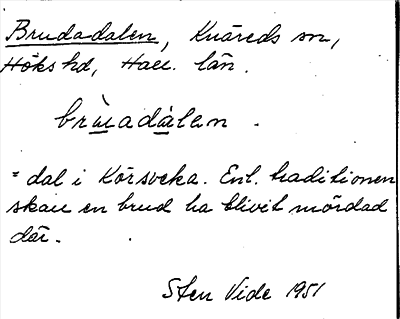 Brudadalen, Knäreds sn,
Höks hd, Hall. län.
brùuadàlen.
= dal i Körsveka. Enl. traditionen
skall en brud ha blivit mördad
där.
Sten Vide 1951